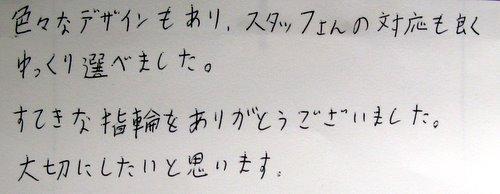 色々なデザインもあり、スタッフさんの対応も良く
ゆっくり選べました。
すてきな指輪をありがとうございました。
大切にしたいと思います。